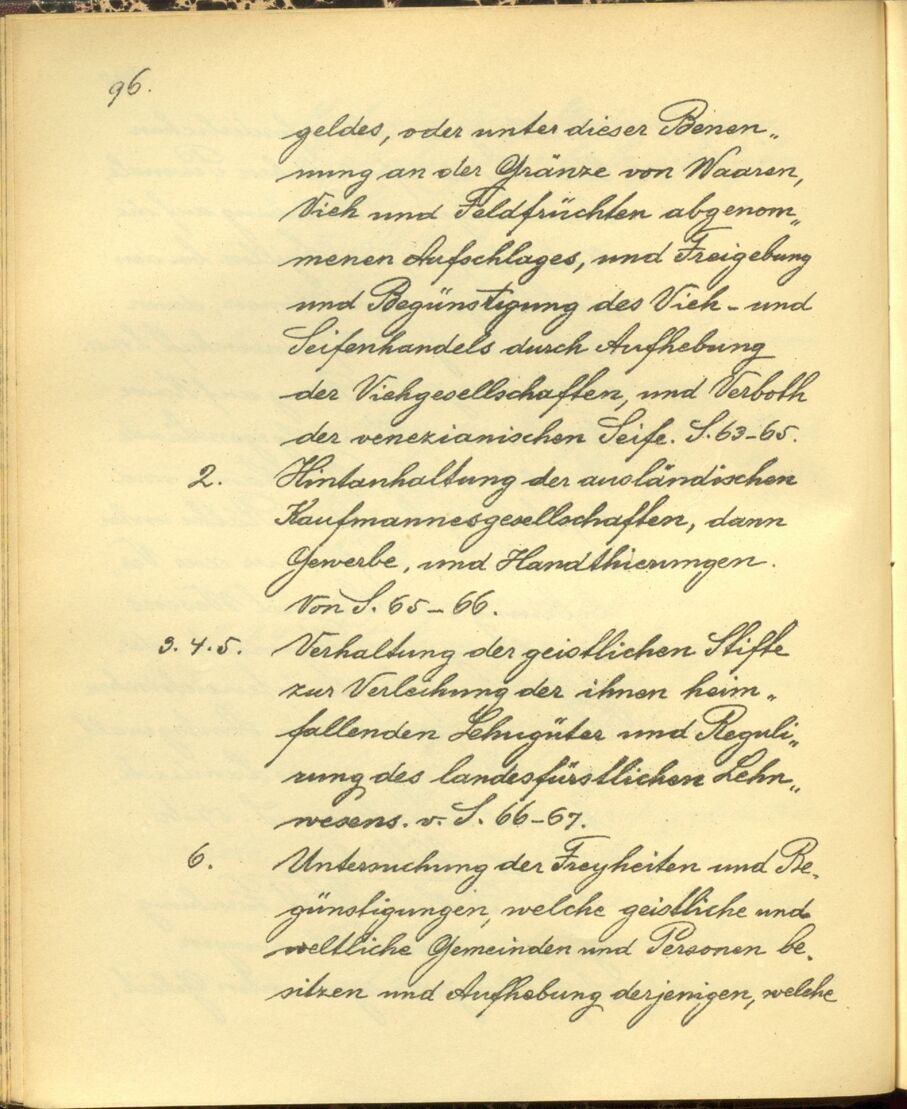 96.
geldes, oder unter dieser Benen„
nung an der Gränze von Waaren,
Vieh und Feldfrüchten abgenom„
menen Aufschlages, und Freigebung
und Begünstigung des Vieh- und
Seifenhandels durch Aufhebung
der Viehgesellschaften, und Verboth
der venezianischen Seife. S. 63-65.
2. Hintanhaltung der ausländischen
Kaufmannesgesellschaften, dann
Gewerbe, und Handthierungen.
Von S. 65-66.
3. 4. 5. Verhaltung der geistlichen Stifte
zur Verleihung der ihnen heim„
fallenden Lehngüter und Reguli„
rung des landesfürstlichen Lehn„
wesens. v. S. 66-67.
6. Untersuchung der Freyheiten und Be„
günstigungen, welche geistliche und
weltliche Gemeinden und Personen be„
sitzen und Aufhebung derjenigen, welche